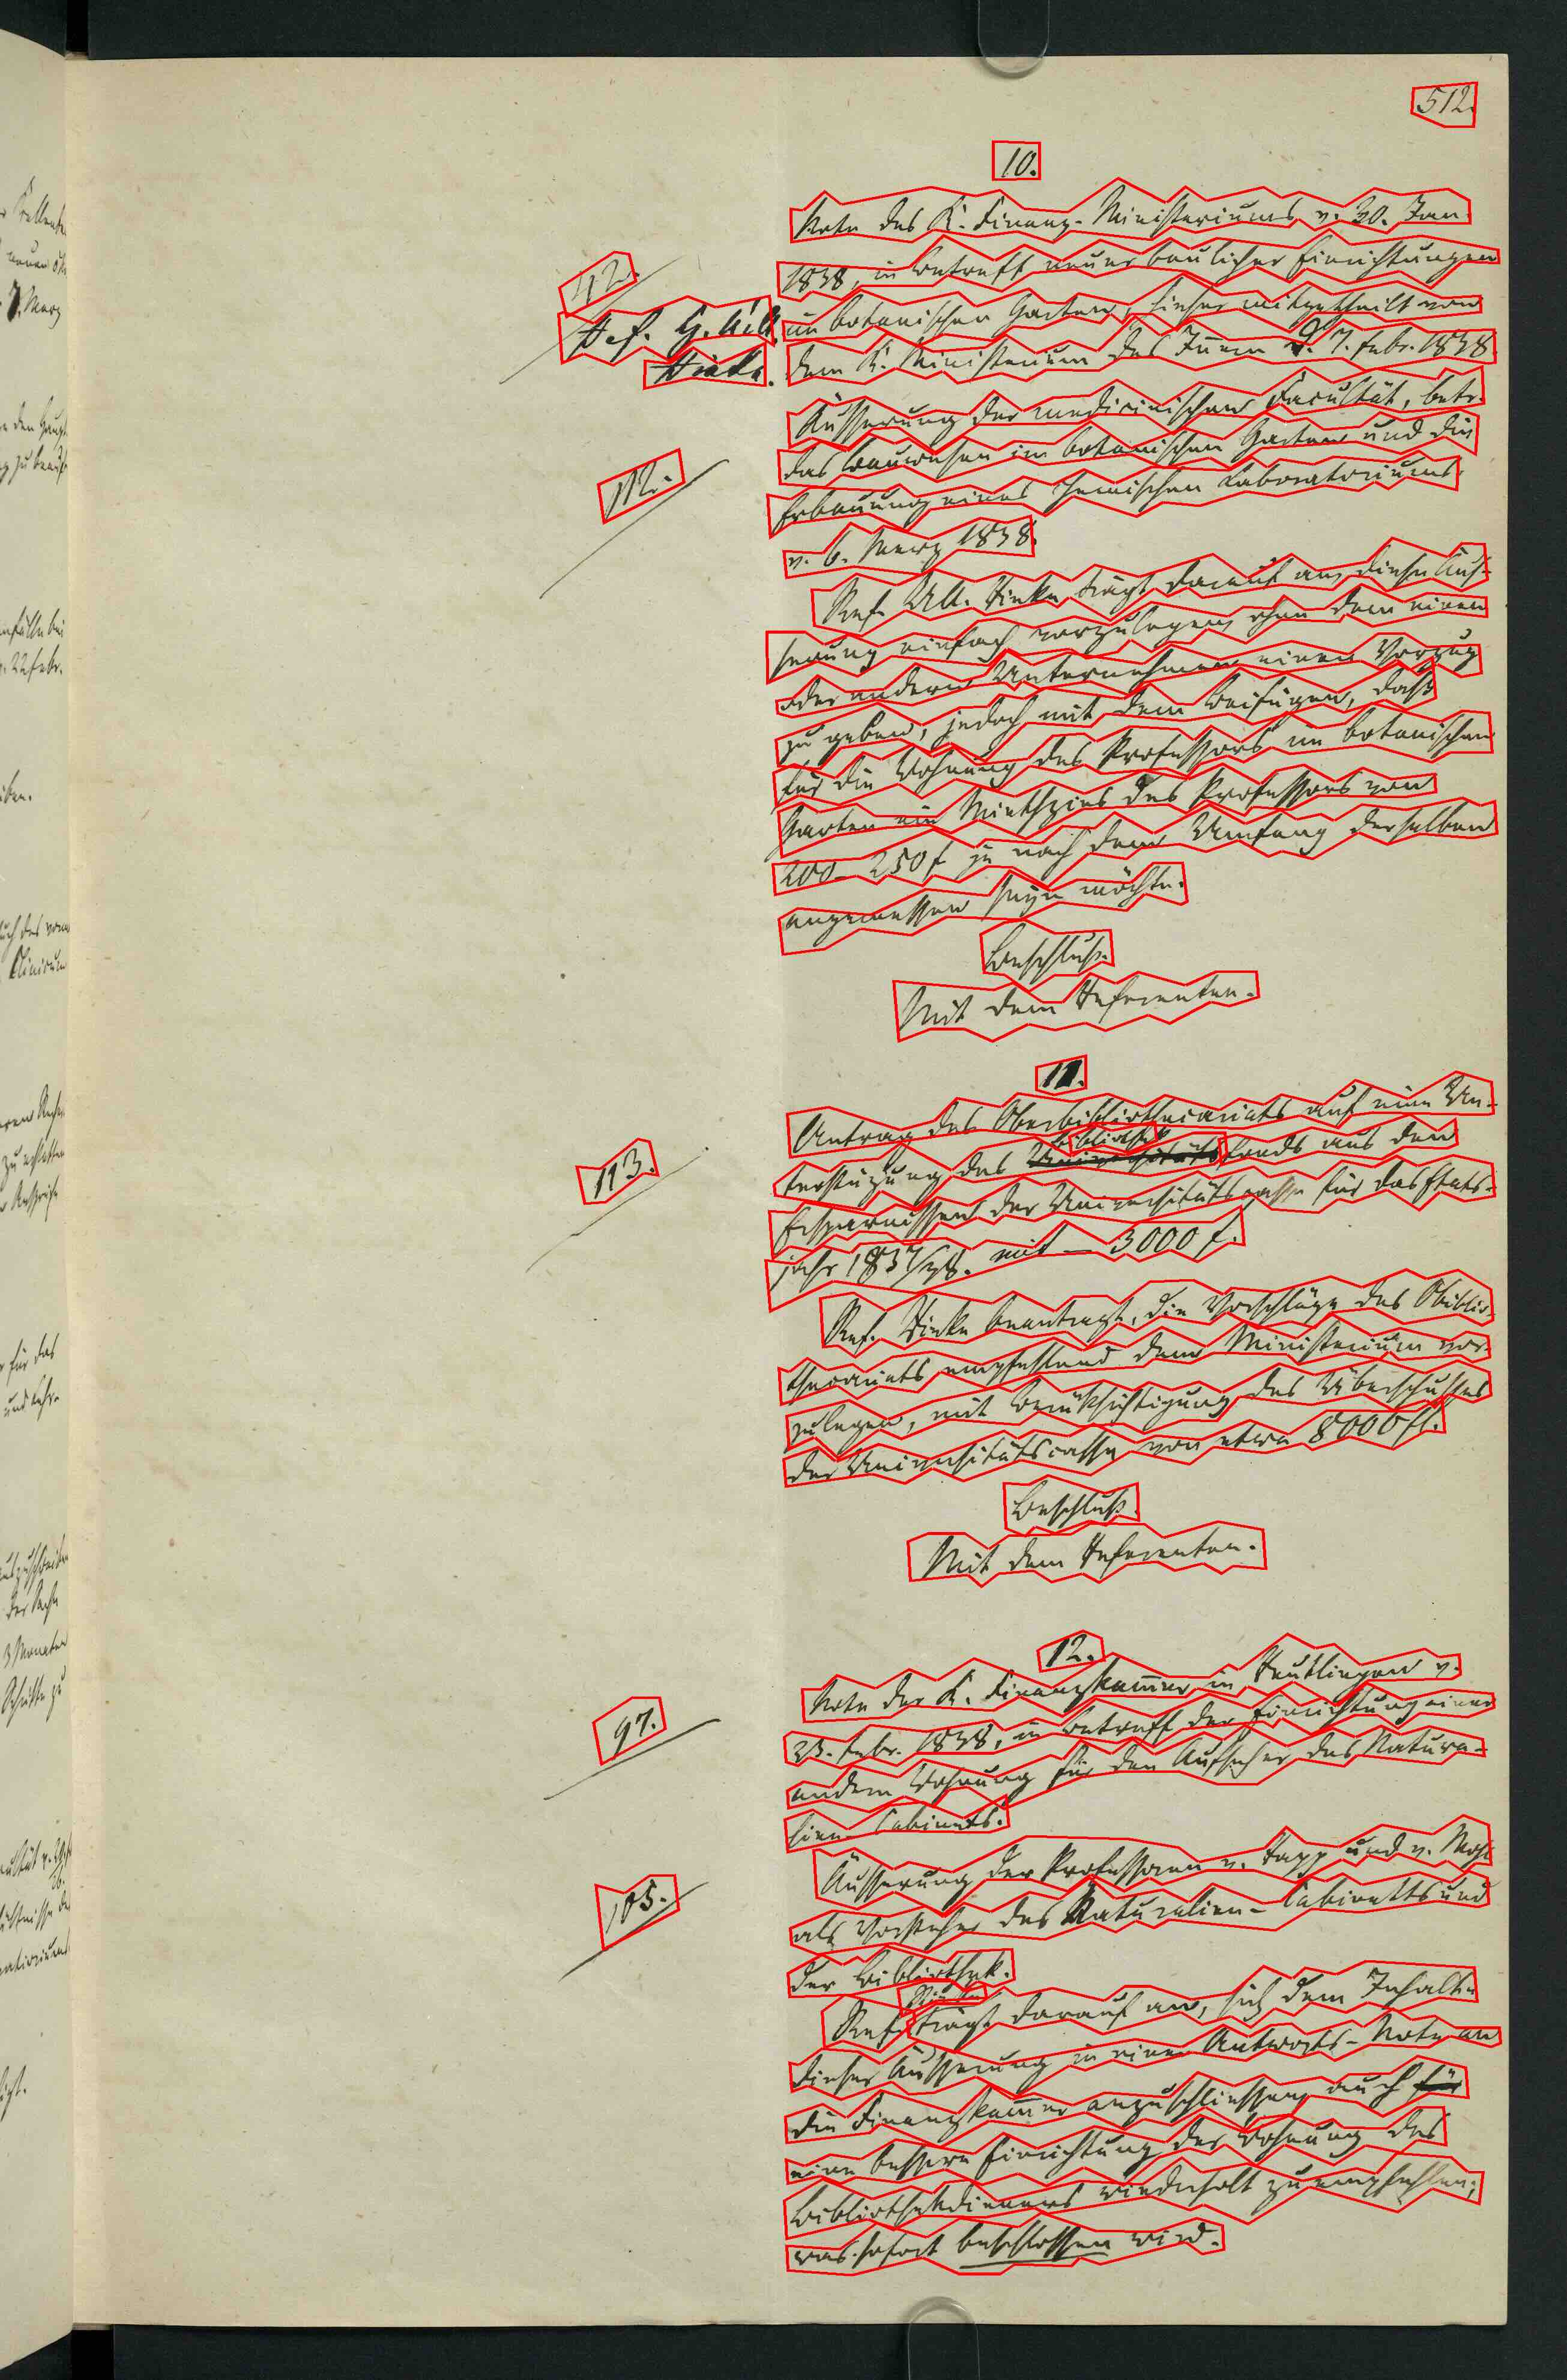 512.
10.
Note des K. Finanz-Ministeriums v. 30. Jan.
1838, in Betreff neuer baulicher Einrichtungen
42.
im botanischen Garten, hieher mitgetheilt von
Ref. U.
Rinke.
dem K. Ministerium des Innern d. 7. Febr. 1838
Äusserung der medicinischen Facultät, betr.
das Bauwesen im botanischen Garten und die
112.
Erbauung eines chemischen Laboratoriums.
v. 6. Merz 1838.
Ref. Rinke trägt darauf an, diese Äus-
serung einfach vorzulegen, ohne dem einen
oder andern Unternehmen einen Vorzug
zu geben, jedoch mit dem Beifügen, daß
für die Wohnung des Professors im botanischen
Garten ein Miethzins des Professors von
200–250 f je nach dem Umfang derselben
angemessen seyn möchte.
Beschluß.
Mit dem Referenten.
11.
Antrag des Oberbibliothecariats auf eine Un-
Bibliothek
terstüzung des Universitäts fonds aus den
113.
Ersparnissen der Universitätscasse für das Etats-
jahr 1837/38. mit — 3000 f.
Ref. Rinke beantragt, die Vorschläge des Obiblio-
thecariats empfehlend dem Ministerium vor-
zulegen, mit Berüksichtigung des Überschusses
der Universitätscasse von etwa 8000 fl.
Beschluß.
Mit dem Referenten.
12.
Note der K. Finanzkam̅er in Reutlingen v.
97.
23. Febr. 1838, in Betreff der Einrichtung einer
andern Wohnung für den Aufseher des Natura-
lien-Cabinets.
Äusserung der Professoren v. Rapp und v. Mohl
105.
als Vorsteher des Naturalien-Cabinetts und
der Bibliothek.
Rinke
Ref. trägt darauf an, sich dem Inhalte
dieser Äusserung in einer Antworts-Note an
die Finanzkam̅er anzuschliessen, auch für
eine bessere Einrichtung der Wohnung des
Bibliothekdieners wiederholt zu empfehlen;
was sofort beschlossen wird.